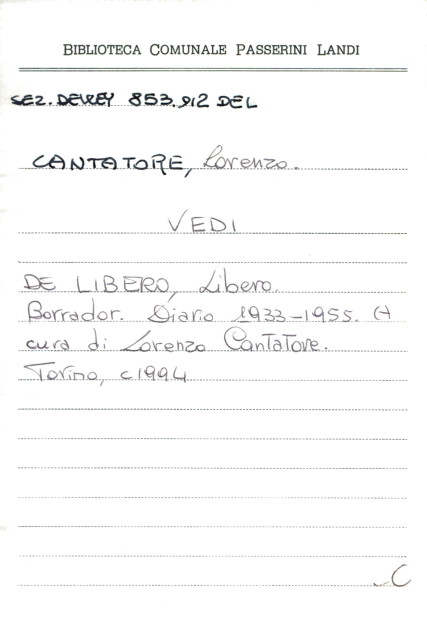 BIBLIOTECA COMUNALE PASSERINI LANDI
SEZ. DEWEY 853.912 DEL
CANTATORE, Lorenzo.
VEDI
DE LIBERO, Libero.
Borrador. Diario 1933-1955. A
cura di Lorenzo Cantatore.
Torino, c1994
C